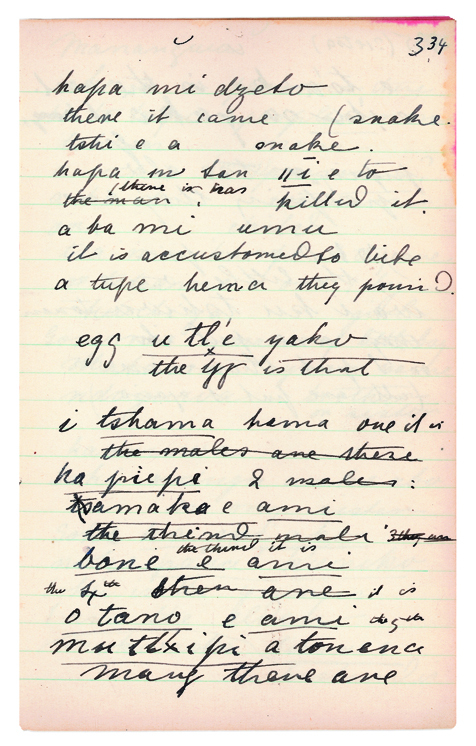 334
hapa mi dzeto
there it came (snake.
tshi e a snake.
hapa m tan ǁī e to
(there is was
the man. killed it.
a ba mi umu
it is accustomed to bite
a tupe hema they poun).
egg u tl'e yako
the egg is that
i tshama hama one it is
the males are these
ka piepi 2 males:
tsamaka e ami
the third male 3 they are
the third it is
bone e ami
the 4th then are it is
o tano e ami the 5th
mutlxipi a tonena
many there are